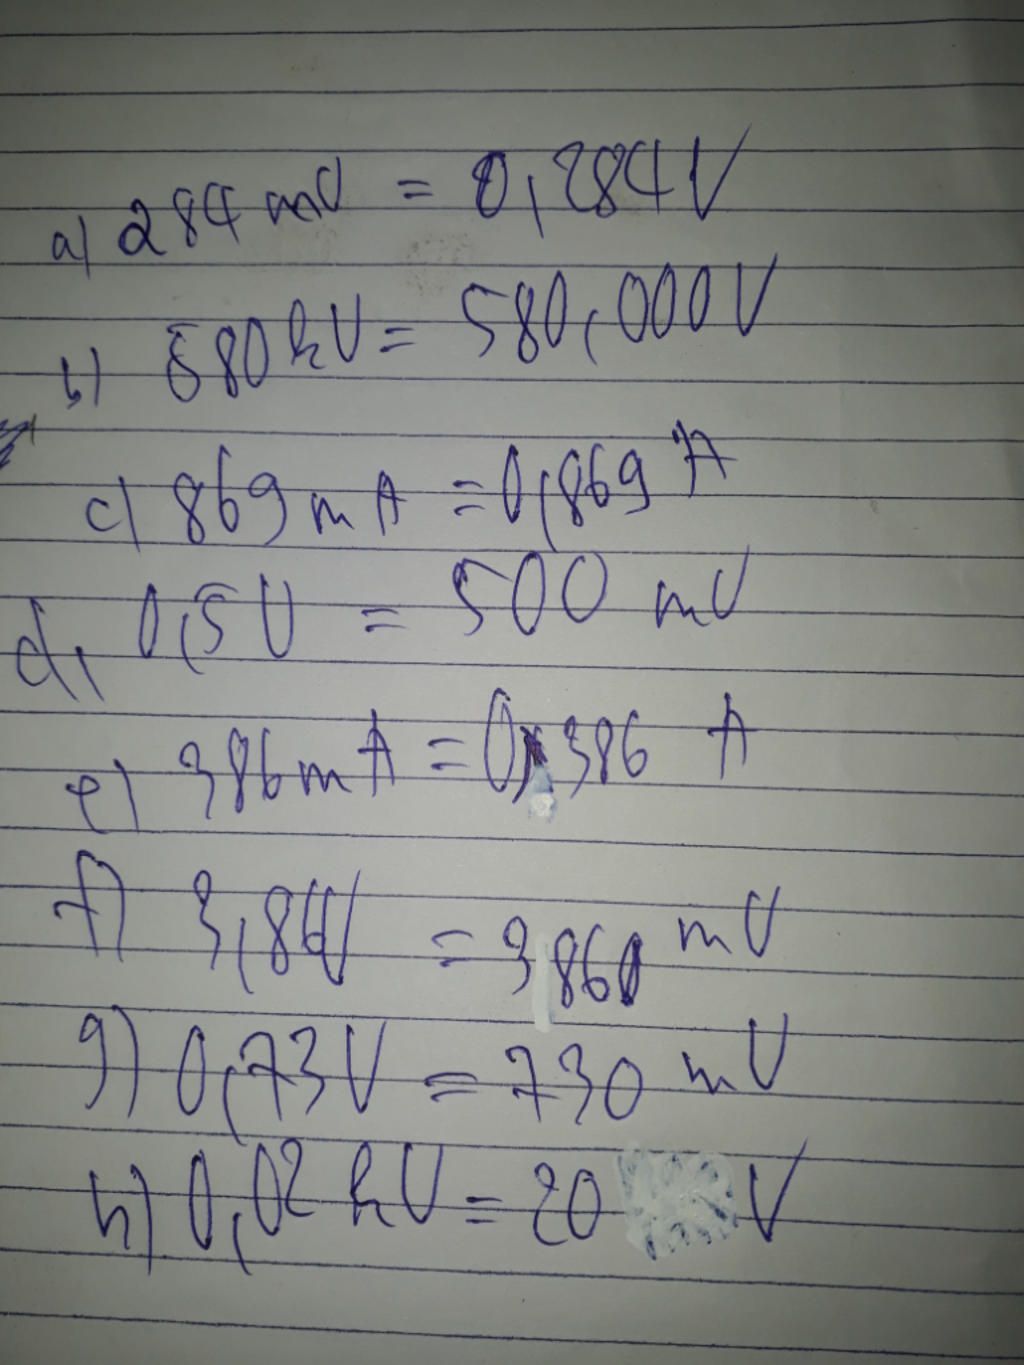 a) 284 mV = 0,284V
b) 580 kV = 580,000V
c) 869 mA = 0,869 A
d, 0,5 V = 500 mV
e) 386 mA = 0,386 A
f) 3,86V = 3860 mV
g) 0,73V = 730 mV
h) 0,02 kV = 20 V